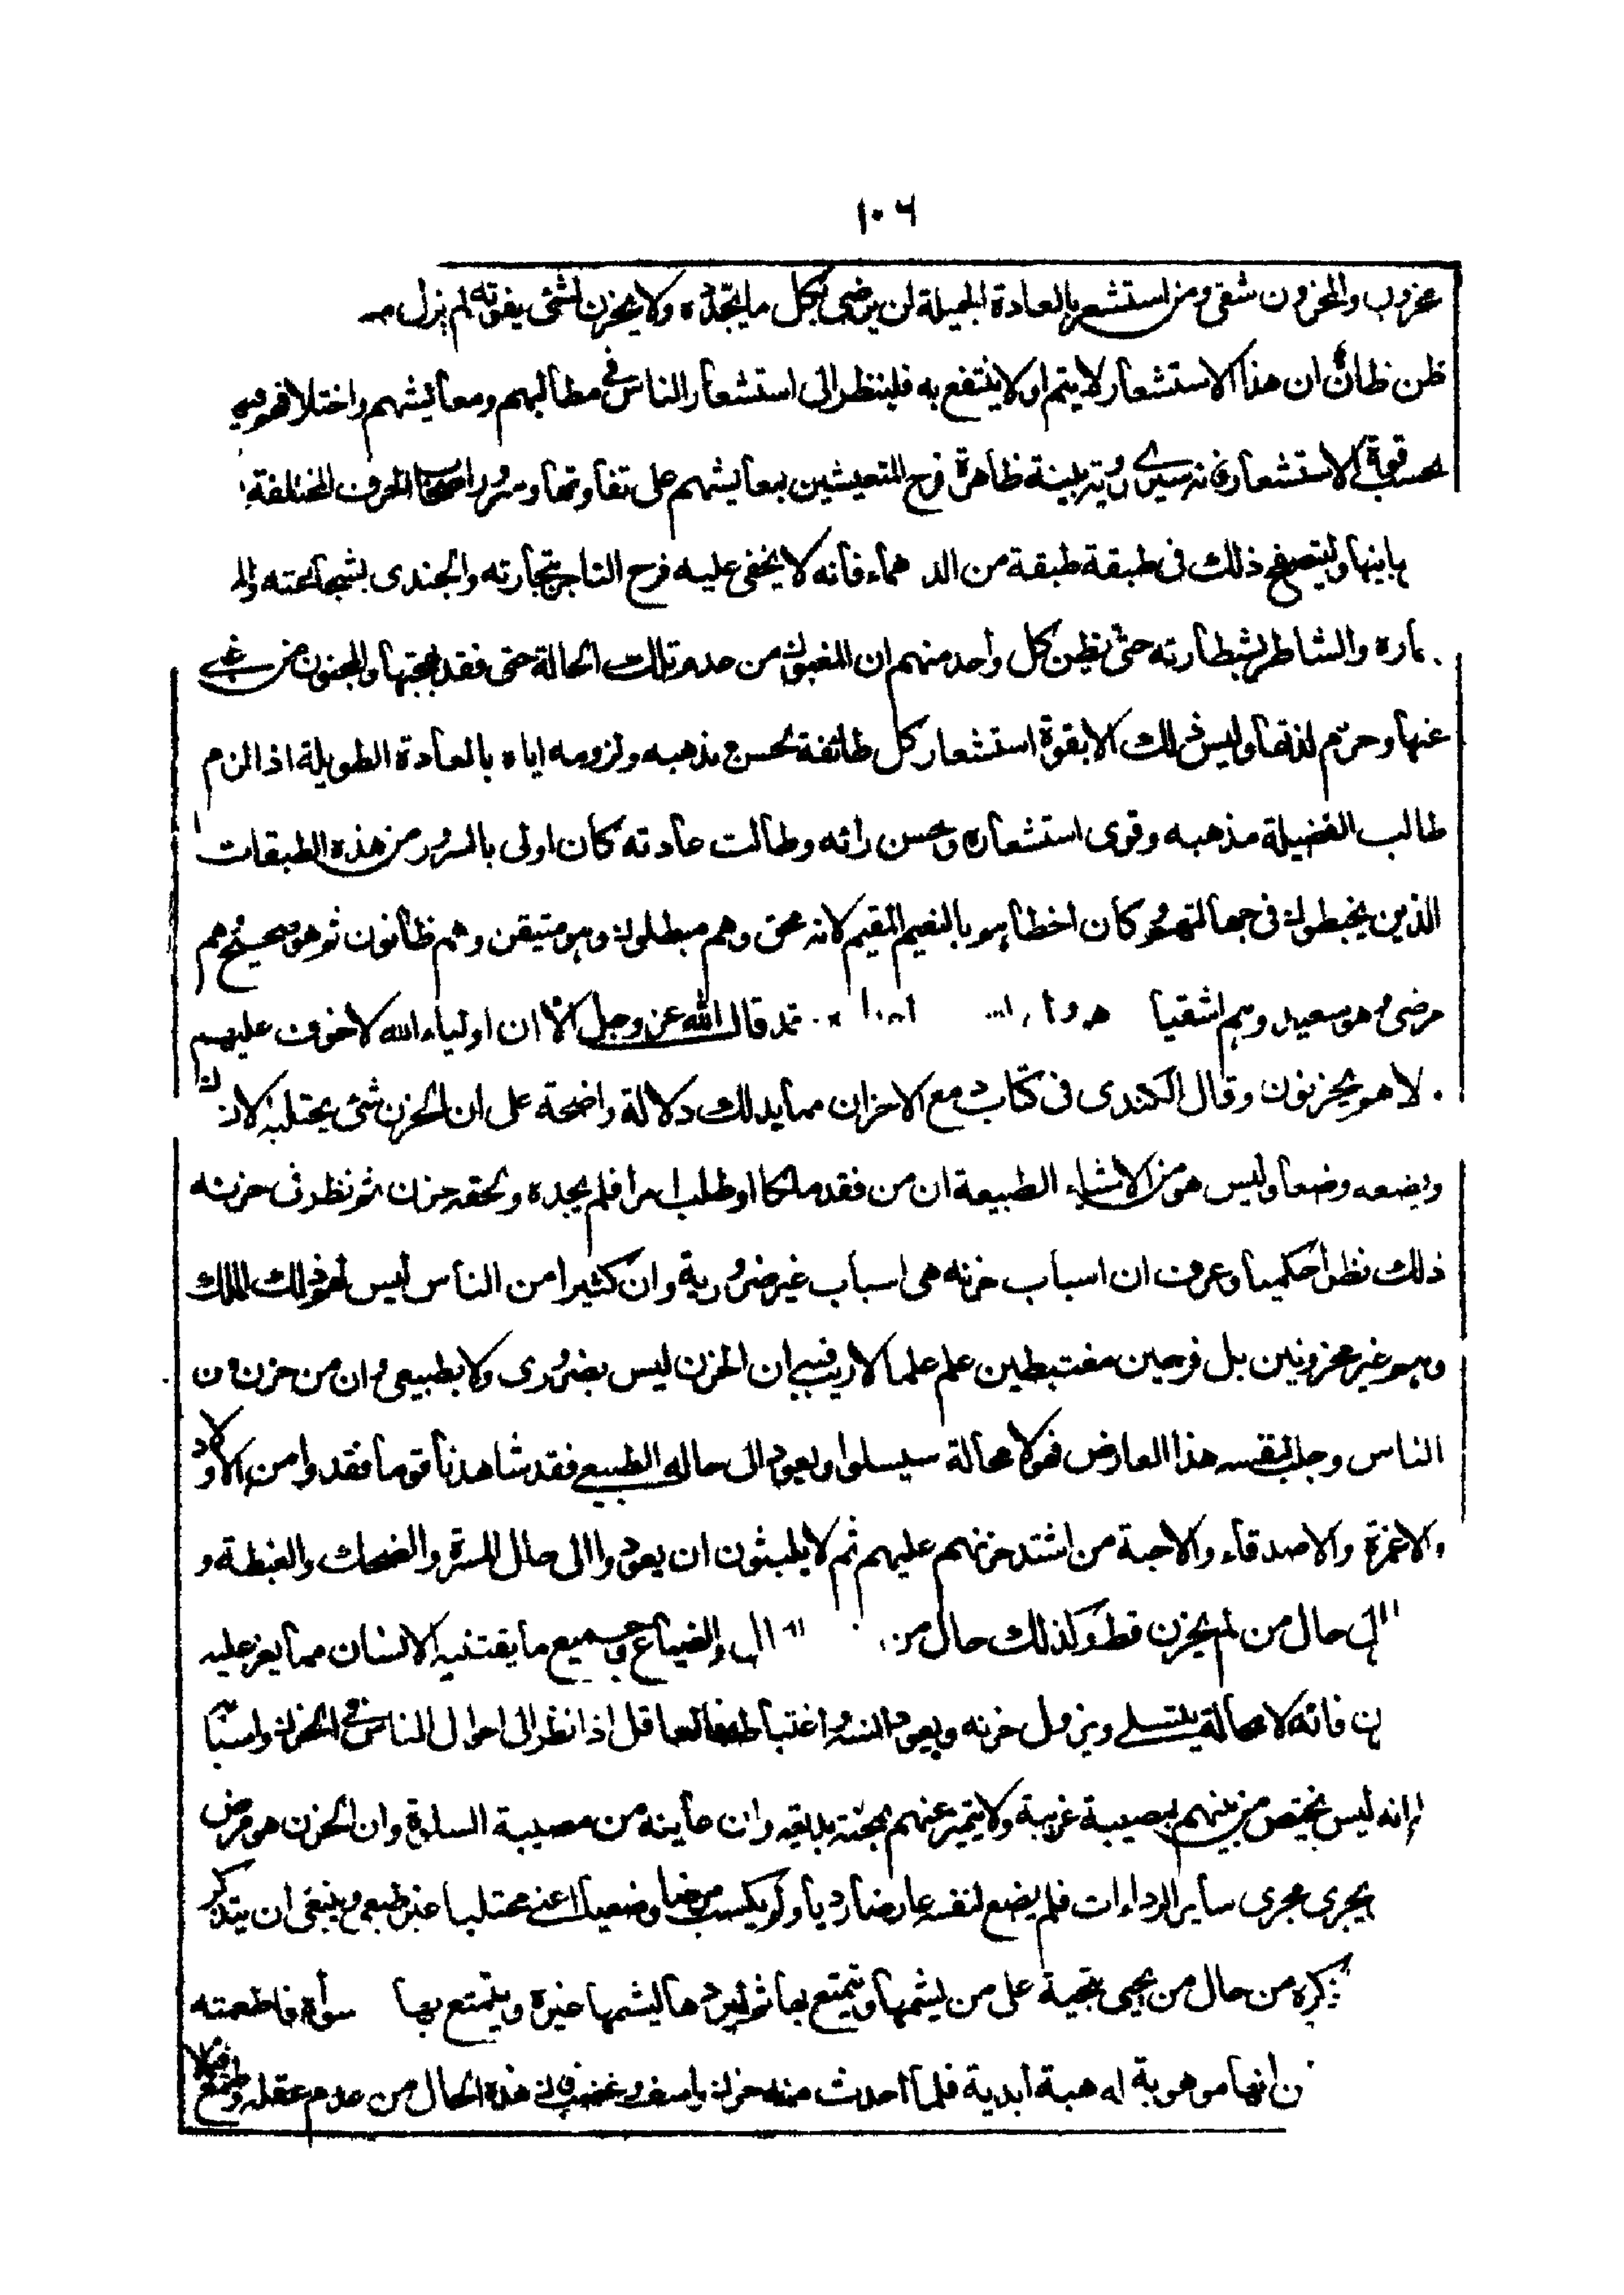 ١٠٦
محزون والمحزون شقى ومن استشعر بالعادة الجميلة لن يرضى بكل ما يجده ولا يحزن لشئ يفوته لم يزل
ظن ظان ان هذا الاستشعار لا يتم او لا ينتفع به فلينظر الى استشعار الناس فى مطالبهم ومعايشهم واختلافهم فيها
بحسب قوة الاستشعار فانه سيرى رؤية بينة ظاهرة فرح المتعيشين بمعايشهم على تفاوتها وسرور اصحاب الحرف المختلفة
وليتصفح ذلك فى طبقة طبقة من الدهماء فأنه لا يخفى عليه فرح التاجر بتجارته والجندى بشجاعته
والشاطر بشطارته حتى يظن كل واحد منهم ان المغبون من عدم تلك الحالة حتى فقد بهجتها والمجنون من غبى
عنها وحرم لذتها وليس ذلك الا بقوة استشعار كل طائفة بحسن مذهبه ولزومه اياه بالعادة الطويلة اذا لزم
طالب الفضيلة مذهبه وقوى استشعاره وحسن رائه وطالت عادته كان اولى بالسرور من هذه الطبقات
الذين يخبطون فى جهالتهم وكان احظاهم بالنعيم المقيم لانه محق وهم مبطلون وهو متيقن وهم ظانون ثم هو صحيح وهم
مرضى وهو سعيد وهم اشقيا قال الله عز وجل الا ان اولياء الله لا خوف عليهم
لا هم يحزنون وقال الكندى فى كتاب دفع الاحزان مما يدلك دلالة واضحة على ان الحزن شئ يجتلبه الان
ويضعه وضعا وليس هو من الاشياء الطبيعة ان من فقد ملكا او طلب امرا فلم يجده ولحقه حزن ثم نظر فى حزنه
ذلك نظرا حكميا وعرف ان اسباب حزنه هى اسباب غير ضرورية وان كثيرا من الناس ليس لهم ذلك الملك
وهم غير محزونين بل فرحين مغتبطين علم علما لا ريب فيه ان الحزن ليس بضرورى ولا بطبيعى وان من حزن من
الناس وجلب لنفسه هذا العارض فهو لا محالة سيسلوا ويعود الى حاله الطبيعى فقد شاهدنا قوما فقدوا من الاولاد
والاعزة والاصدقاء والاحبة من اشتد حزنهم عليهم ثم لا يلبثون ان يعودوا الى حال المسرة والضحك والغبطة و
الى حال من لم يحزن قط وكذلك حال من والضياع وجميع ما يقتنيه الانسان مما يعز عليه
فانه لا محالة يتسلى ويزول حزنه ويعود انسه واغتباطه فالعاقل اذا نظر الى احوال الناس فى الحزن واسبابه
انه ليس يختص من بينهم بمصيبة غريبة ولا يتميز عنهم بمحنة بديعة وان غايته من مصيبة السلوة وان الحزن هو مرض
يجرى مجرى ساير الرداءات فلم يضع لنفسه عارضا رديا ولم يكتسب مرضا وضعيا اعنى مجتلبا غير طبيعى وينبغى ان يتذكر
ذكره من حال من يحيى بتحية على من يشمها ويتمتع بها ثم ليردها ليشمها غيره ويتمتع بها سواه فاطمعته
انها موهوبة له هبة ابدية فلما اخذت منه حزن واسف وغضب فان هذه الحال من عدم عقله وطمع فيما لا